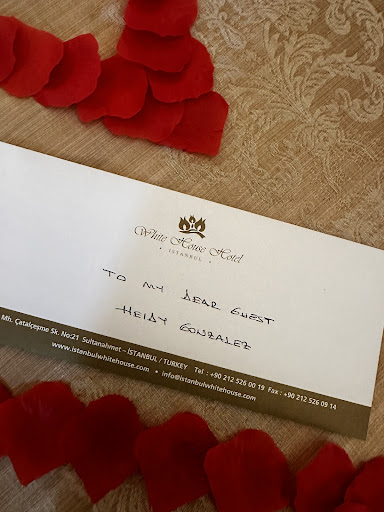 White House Hotel
• ISTANBUL •
TO MY DEAR GUEST
HEIDY GONZALEZ
Mh. Çatalçeşme Sk. No:21 Sultanahmet – İSTANBUL / TURKEY Tel : +90 212 526 00 19 Fax : +90 212 526 09 14
www.istanbulwhitehouse.com • info@istanbulwhitehouse.com